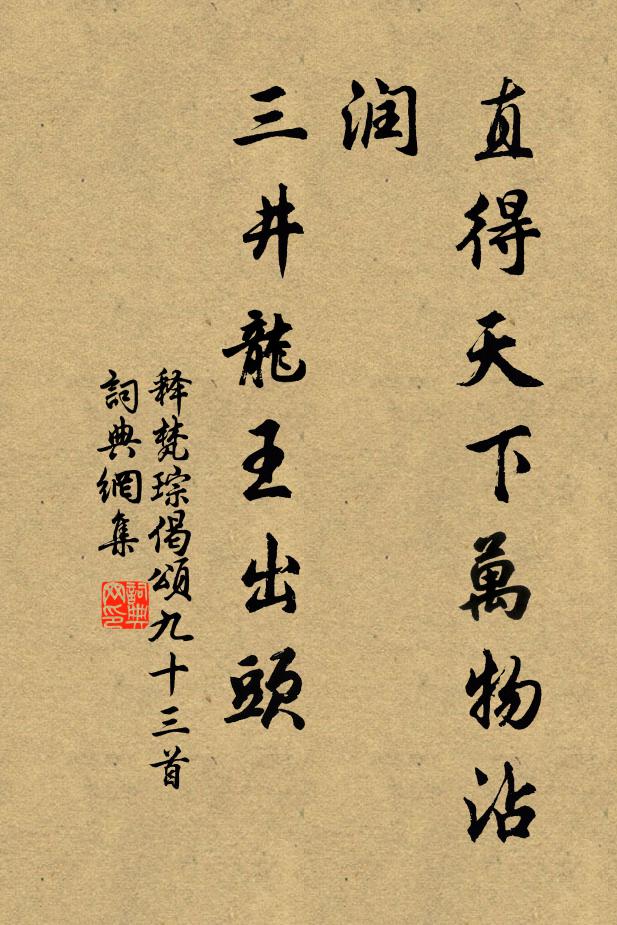 直得天下萬物沾
润
三井龍王出頭
释梵琮偈頌九十三首
詞典網集
詞典网印